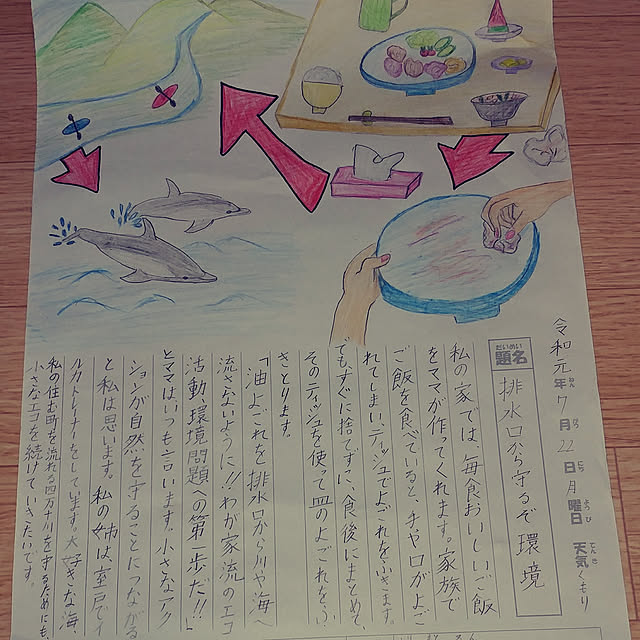 令和元年7月22日月曜日 天気くもり
題名 排水口から守るぞ環境
私の家では、毎食おいしいご飯
をママが作ってくれます。家族で
ご飯を食べていると、手や口がよご
れてしまい、ティッシュでよごれをふきます。
でも、すぐに捨てずに、食後にまとめて、
そのティッシュを使って皿のよごれを、ふ
きとります。
「油よごれを排水口から川や海へ
流さないように!!わが家流のエコ
活動、環境問題への第一歩だ!!」
とママはいつも言います。小さなアク
ションが自然を守ることにつながる
と私は思います。私の姉は室戸でイ
ルカトレーナーをしています。大好きな海、
私の住む町を流れる四万十川を守るためにも、
小さなエコを続けていきたいです。